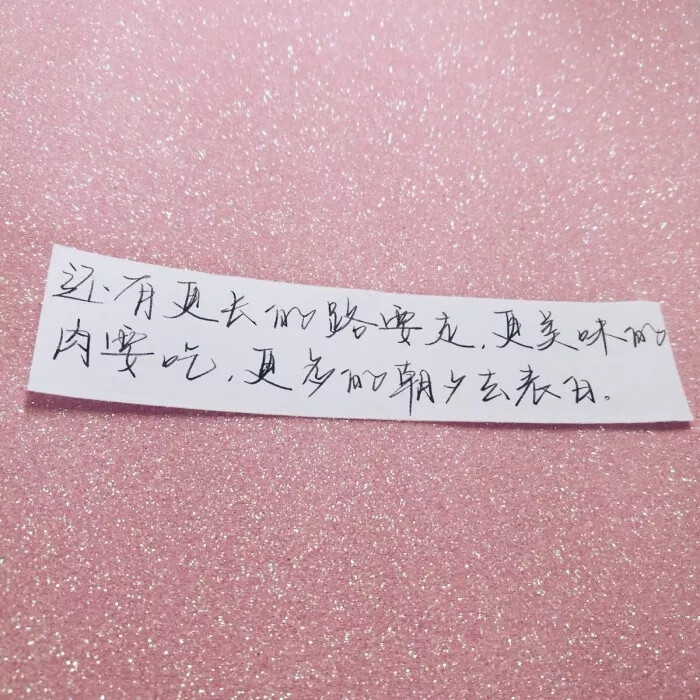 还有更长的路要走,更美味的
肉要吃,更多的朝夕去表白。